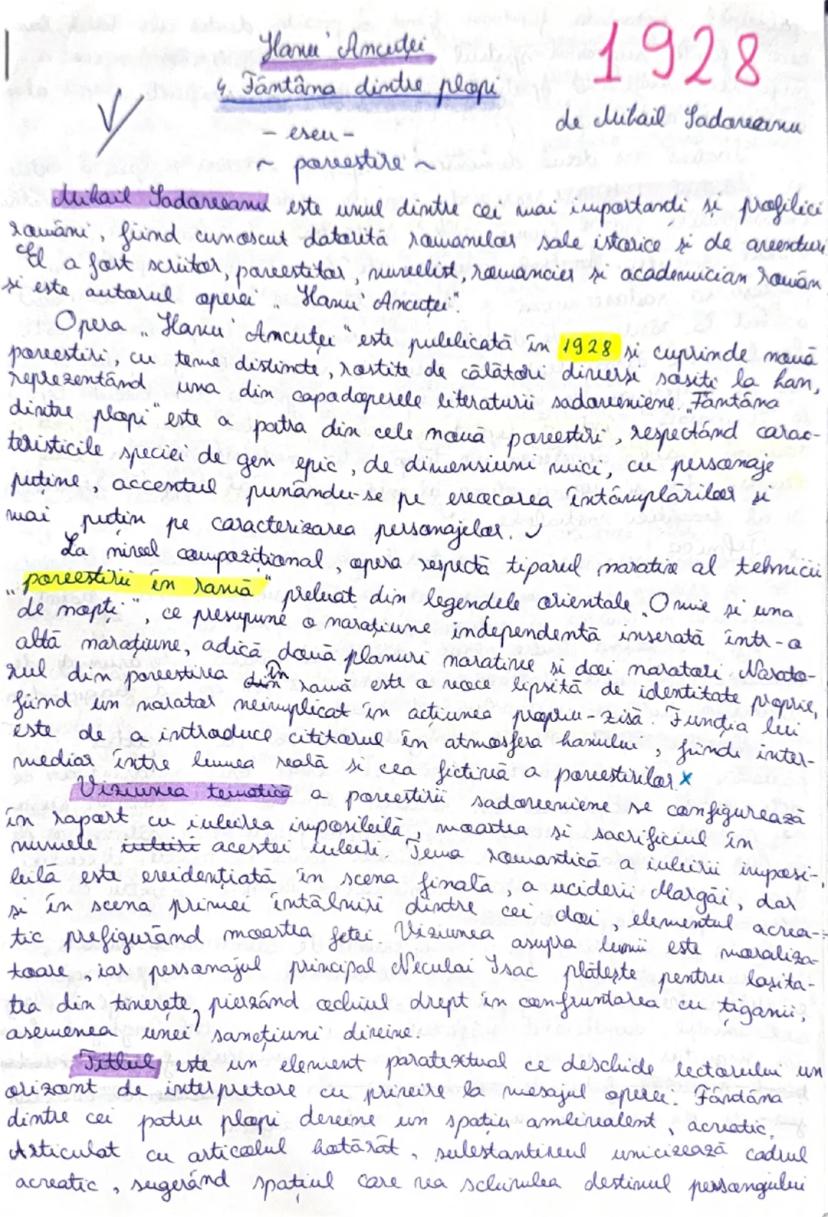 Hanu Ancuței
1928
4. Fântâna dintre plopi
de Mihail Sadoveanu
- eseu -
~ povestire ~
Mihail Sadoveanu este unul dintre cei mai importanti și prolifici
români, fiind cunoscut datorită romanelor sale istorice și de aventuri
El a fost scriitor, povestitor, nuvelist, romancier și academician român
și este autorul operei "Hanu Ancuței".
Opera „Hanu Ancuței" este publicată în 1928 și cuprinde nouă
povestiri, cu teme distincte, rostite de călători diverși sosiți la han,
reprezentând una din capodoperele literaturii sadoveniene. „Fântâna
dintre plopi" este a patra din cele nouă povestiri, respectând carac-
teristicile speciei de gen epic, de dimensiuni mici, cu personaje
puține, accentul punându-se pe evocarea întâmplărilor și
mai puțin pe caracterizarea personajelor.
La nivel compozițional, opera respectă tiparul narativ al tehnicii
„povestirii în ramă" preluat din legendele orientale „O mie și una
de nopti", ce presupune o narațiune independentă inserată într-o
altă narațiune, adică două planuri narative si doi naratori. Narato-
rul din povestirea din în ramă este o voce lipsită de identitate proprie,
fiind un narator neimplicat în acțiunea propriu-zisă. Funcția lui
este de a introduce cititorul în atmosfera hanului fiind inter-
mediar între lumea reală si cea fictivă a povestirilor x
Viziunea tematică a povestirii sadoveniene se configurează
în raport cu iubirea imposibilă, moartea si sacrificiul în
numele iubirii acestei iubiri. Tema romantică a iubirii imposi-
bilă este evidențiată în scena finală, a uciderii Margăi, dar
si în scena primei întâlniri dintre cei doi, elementul acva-
tic prefigurând moartea fetei. Viziunea asupra lumii este moraliza-
toare, iar personajul principal Neculai Isac plătește pentru lașita-
tea din tinerete, pierzând ochiul drept în confruntarea cu țiganii,
asemenea unei sancțiuni divine.
Titlul este un element paratextual ce deschide lectorului un
orizont de interpretare cu privire la mesajul operei. Fântâna
dintre cei patru plopi devine un spațiu ambivalent, acvatic.
Articulat cu articolul hotărât, substantivul unicizează cadrul
acvatic, sugerând spațiul care va schimba destinul personajului